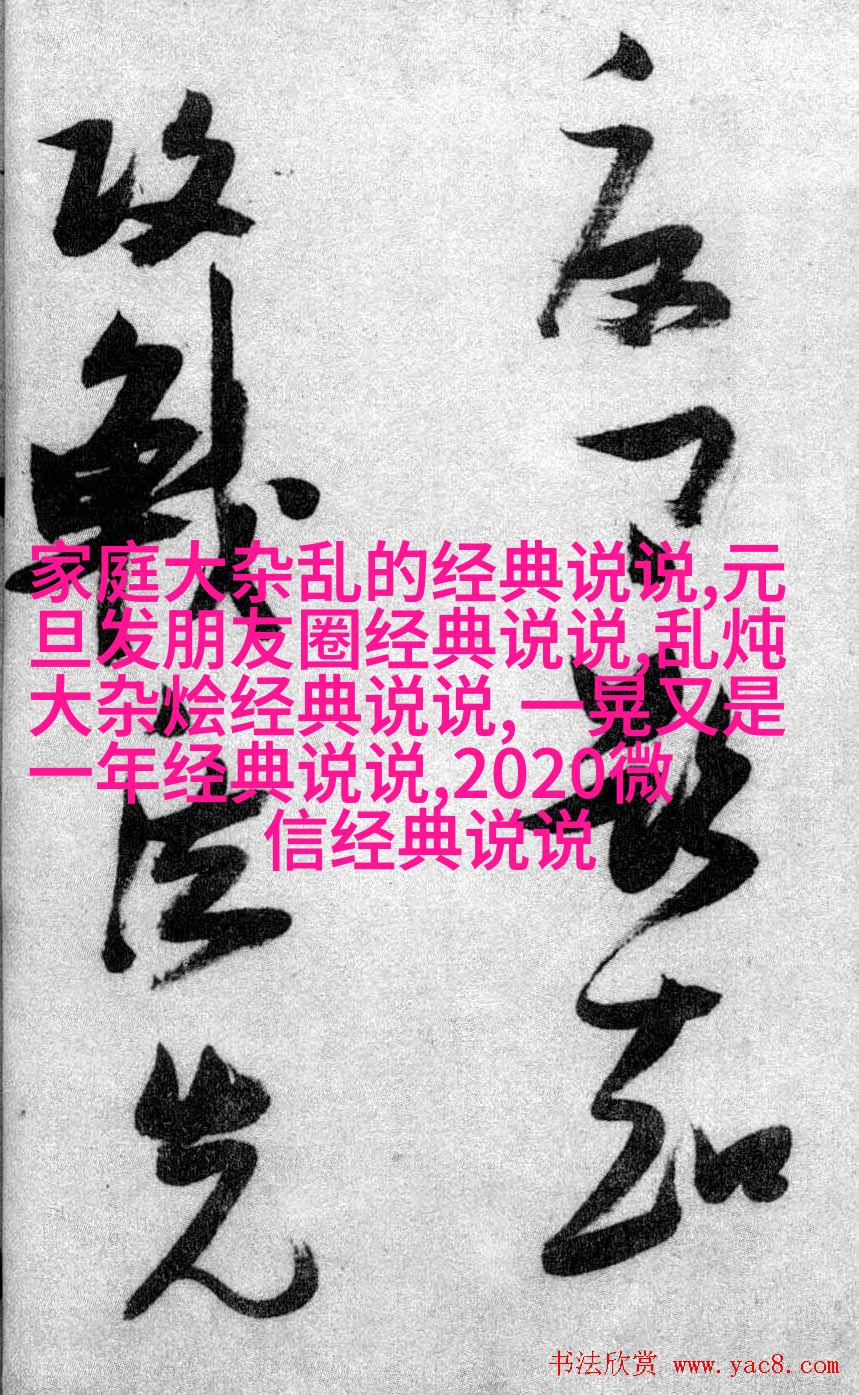 家庭大杂乱的经典说说,元
旦发朋友圈经典说说,乱炖
大杂烩经典说说,一晃又是
一年经典说说,2020微
信经典说说
知
攻戰法先
书法欣赏 www.yac8.com